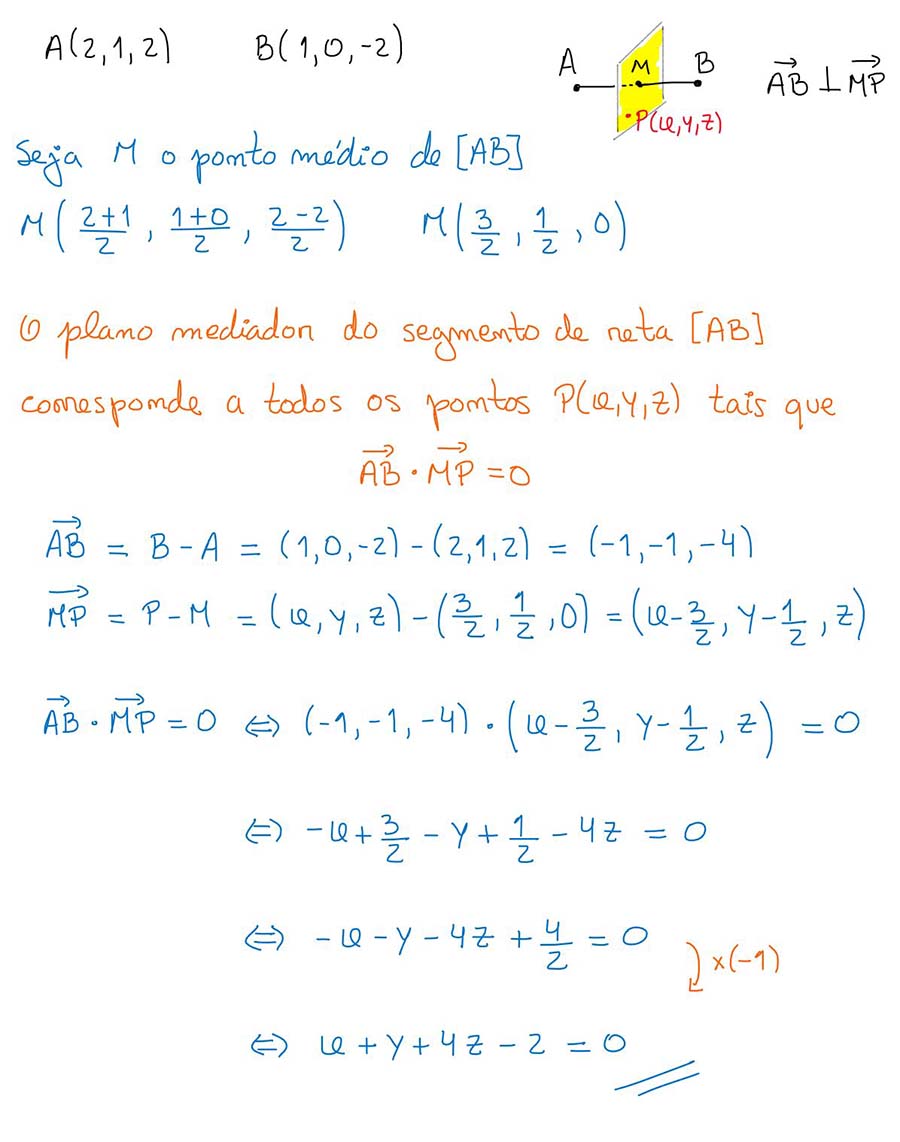 A(2,1,2) B(1,0,-2)
A M B
P(x,y,z)
$\overrightarrow{AB} \perp \overrightarrow{MP}$
Seja M o ponto médio de [AB]
$M\left(\frac{2+1}{2}, \frac{1+0}{2}, \frac{2-2}{2}\right)$ $M\left(\frac{3}{2}, \frac{1}{2}, 0\right)$
O plano mediador do segmento de reta [AB]
corresponde a todos os pontos P(x,y,z) tais que
$\overrightarrow{AB} \cdot \overrightarrow{MP} = 0$
$\overrightarrow{AB} = B - A = (1,0,-2) - (2,1,2) = (-1,-1,-4)$
$\overrightarrow{MP} = P - M = (x,y,z) - \left(\frac{3}{2}, \frac{1}{2}, 0\right) = \left(x - \frac{3}{2}, y - \frac{1}{2}, z\right)$
$\overrightarrow{AB} \cdot \overrightarrow{MP} = 0 \Leftrightarrow (-1,-1,-4) \cdot \left(x - \frac{3}{2}, y - \frac{1}{2}, z\right) = 0$
$\Leftrightarrow -x + \frac{3}{2} - y + \frac{1}{2} - 4z = 0$
$\Leftrightarrow -x - y - 4z + \frac{4}{2} = 0$
×(-1)
$\Leftrightarrow x + y + 4z - 2 = 0$